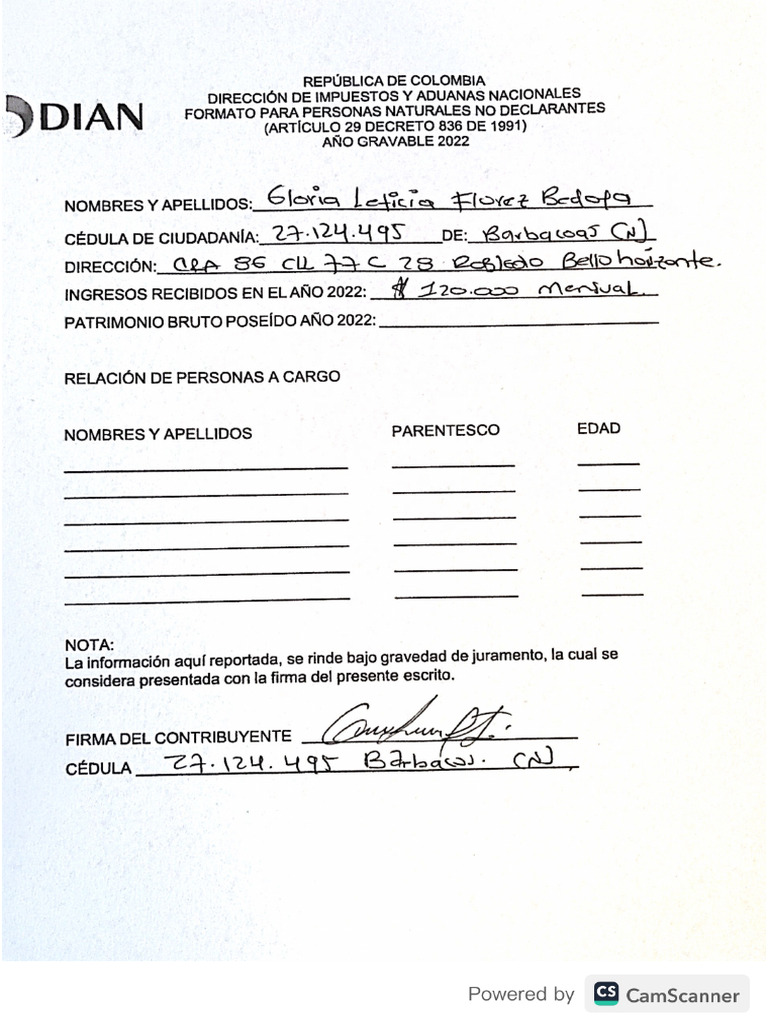 REPÚBLICA DE COLOMBIA
DIRECCIÓN DE IMPUESTOS Y ADUANAS NACIONALES
FORMATO PARA PERSONAS NATURALES NO DECLARANTES
(ARTÍCULO 29 DECRETO 836 DE 1991)
AÑO GRAVABLE 2022
DIAN
NOMBRES Y APELLIDOS: Gloria Leticia Florez Bedoya
CÉDULA DE CIUDADANÍA: 27.124.495 DE: Barbacoas (N)
DIRECCIÓN: CRA 86 CLL 77 C 28 Robledo Bello horizonte.
INGRESOS RECIBIDOS EN EL AÑO 2022: $ 120.000 Mensual.
PATRIMONIO BRUTO POSEÍDO AÑO 2022:
RELACIÓN DE PERSONAS A CARGO
NOMBRES Y APELLIDOS PARENTESCO EDAD
NOTA:
La información aquí reportada, se rinde bajo gravedad de juramento, la cual se
considera presentada con la firma del presente escrito.
FIRMA DEL CONTRIBUYENTE
CÉDULA 27.124.495 Barbácos. (N)
Powered by CS CamScanner